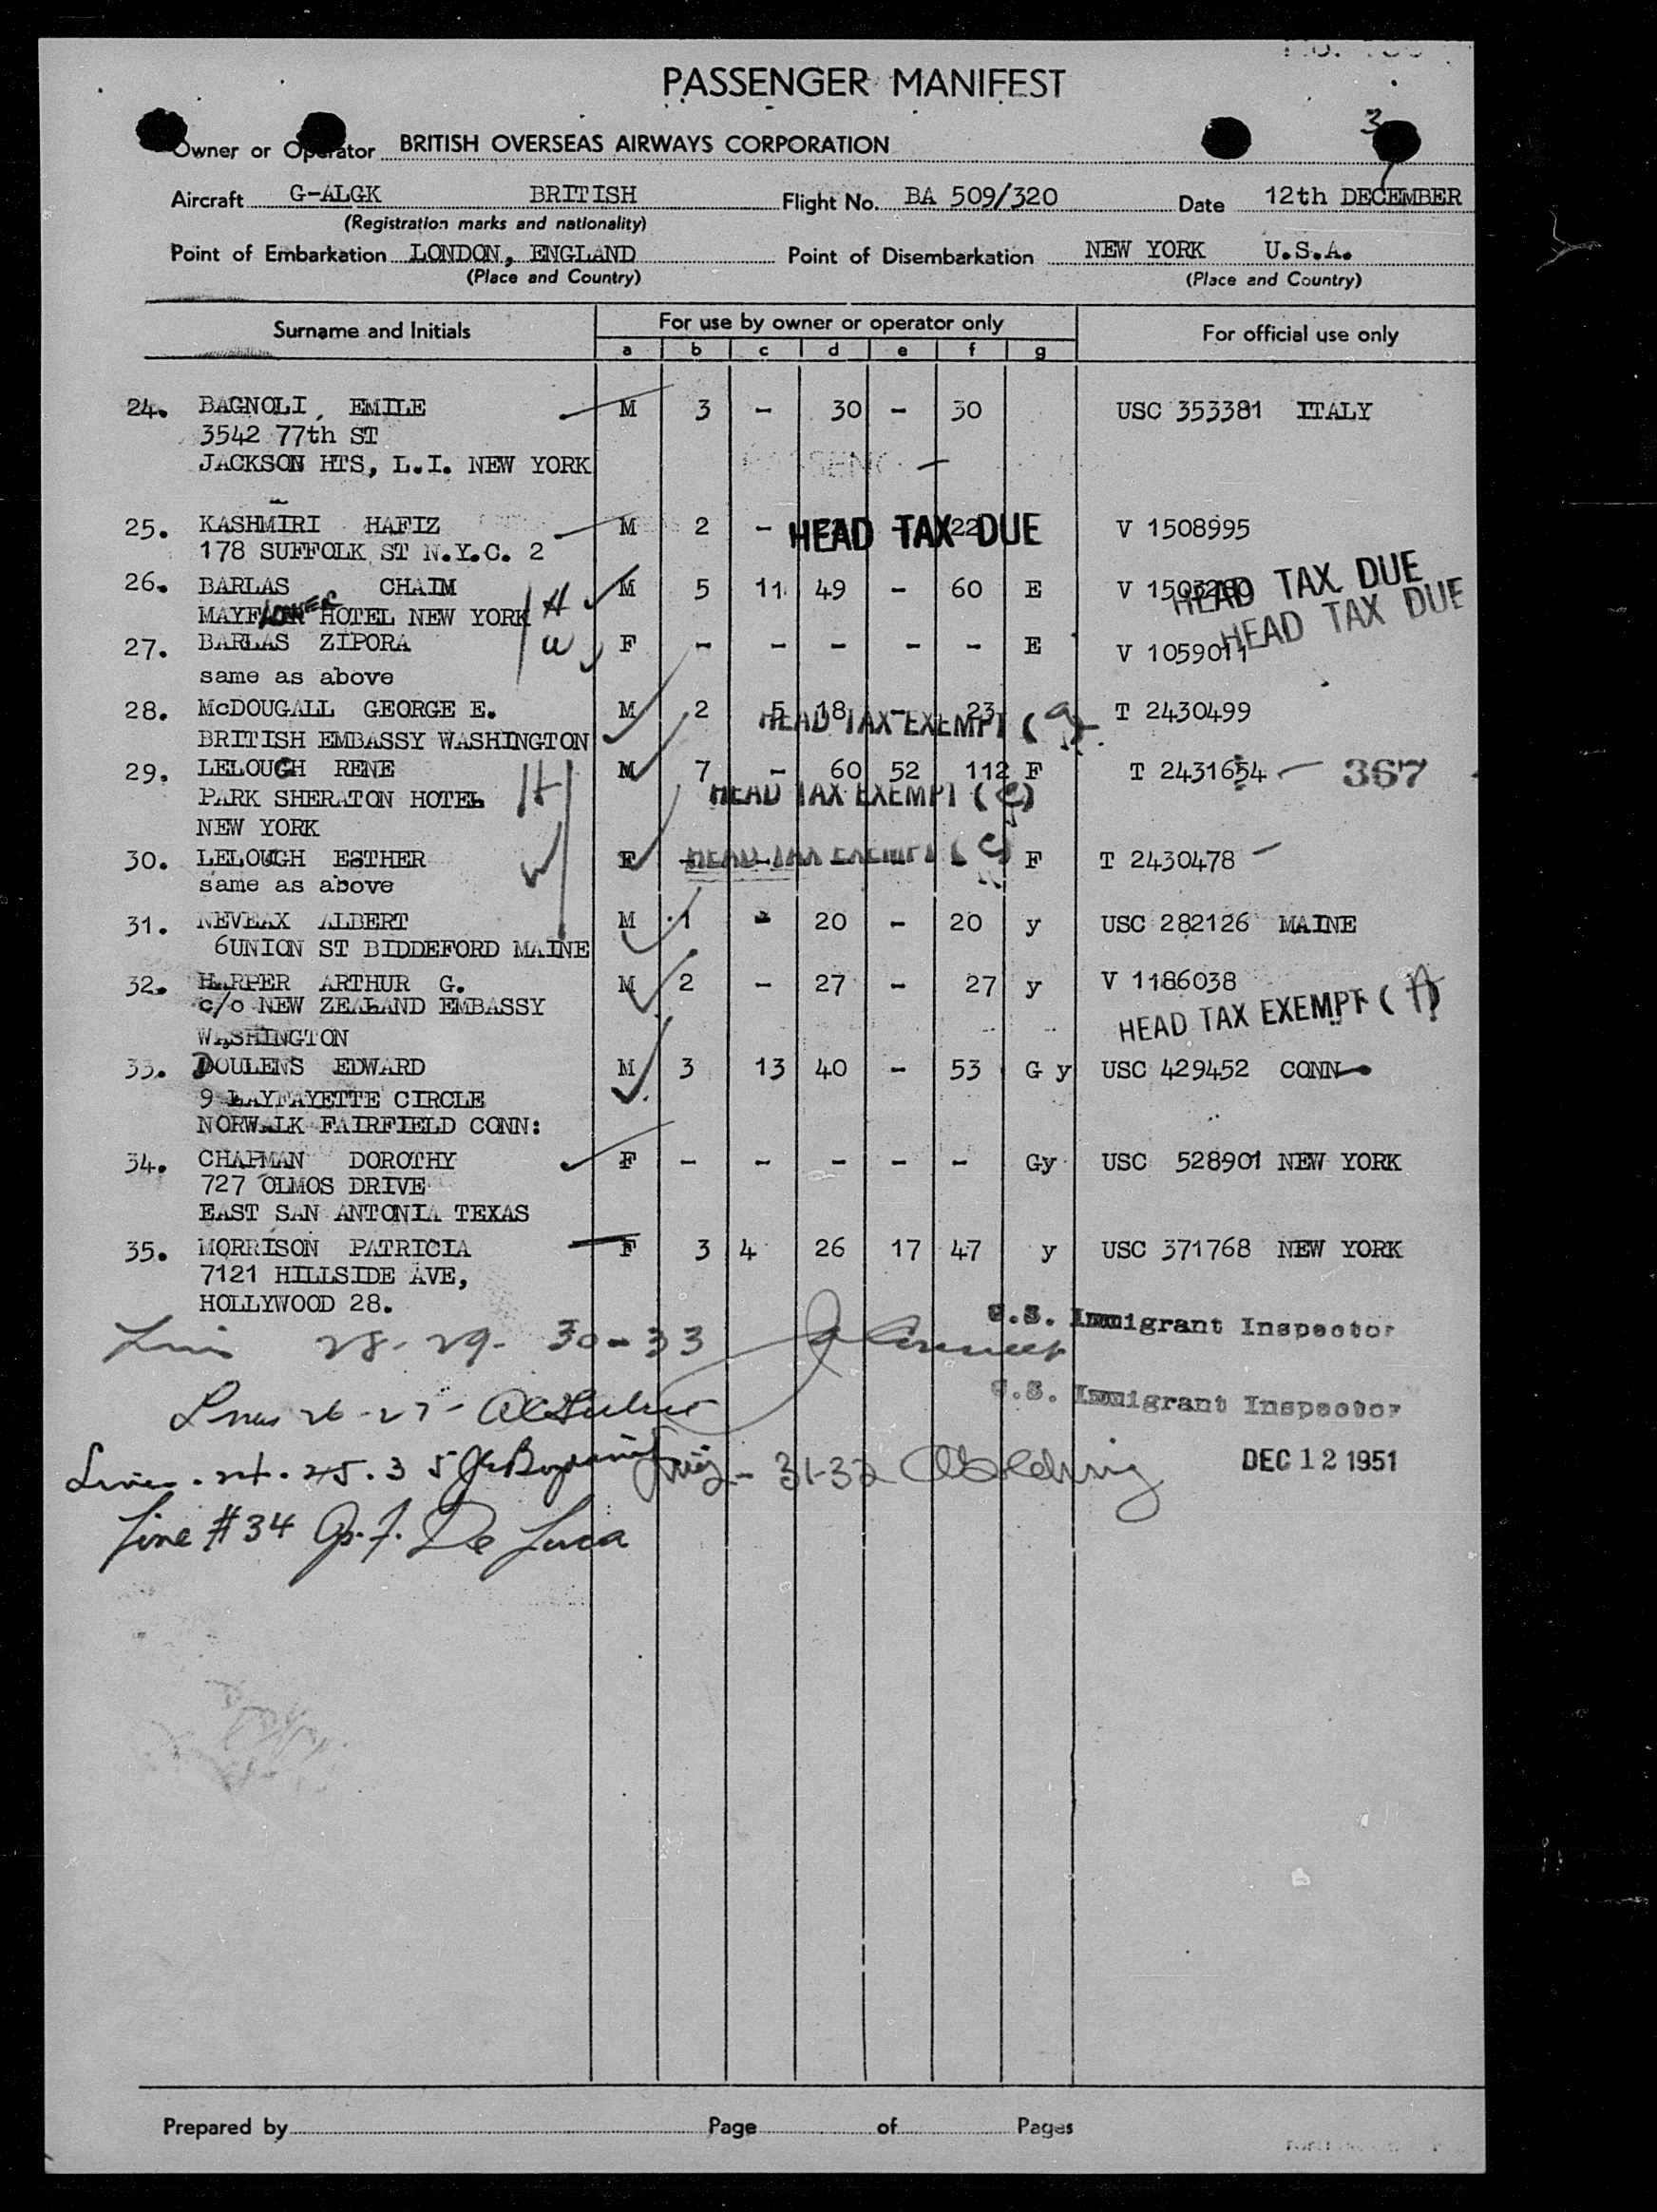 PASSENGER MANIFEST
3
Owner or Operator BRITISH OVERSEAS AIRWAYS CORPORATION
Aircraft G-ALGK BRITISH Flight No. BA 509/320 Date 12th DECEMBER
(Registration marks and nationality)
Point of Embarkation LONDON, ENGLAND Point of Disembarkation NEW YORK U.S.A.
(Place and Country) (Place and Country)
Surname and Initials For use by owner or operator only For official use only
a b c d e f g
24. BAGNOLI, EMILE M 3 - 30 - 30 USC 353381 ITALY
3542 77th ST
JACKSON HTS, L.I. NEW YORK
25. KASHMIRI HAFIZ M 2 - - 22 V 1508995
HEAD TAX DUE
178 SUFFOLK ST N.Y.C. 2
26. BARLAS CHAIM H M 5 11 49 - 60 E V 1503280
HEAD TAX DUE
MAYFLOWER HOTEL NEW YORK
HEAD TAX DUE
27. BARLAS ZIPORA W F - - - - - E V 1059011
same as above
28. McDOUGALL GEORGE E. M 2 5 18 - 23 T 2430499
HEAD TAX EXEMPT (a)
BRITISH EMBASSY WASHINGTON
29. LELOUGH RENE H M 7 - 60 52 112 F T 2431654 - 367
PARK SHERATON HOTEL
HEAD TAX EXEMPT (C)
NEW YORK
30. LELOUGH ESTHER W F - - - - - F T 2430478
HEAD TAX EXEMPT (C)
same as above
31. NEVEAX ALBERT M 1 - 20 - 20 y USC 282126 MAINE
6UNION ST BIDDEFORD MAINE
32. HARPER ARTHUR G. M 2 - 27 - 27 y V 1186038
c/o NEW ZEALAND EMBASSY
HEAD TAX EXEMPT (A)
WASHINGTON
33. DOULENS EDWARD M 3 13 40 - 53 G y USC 429452 CONN
9 LAYFAYETTE CIRCLE
NORWALK FAIRFIELD CONN:
34. CHAPMAN DOROTHY F - - - - - Gy USC 528901 NEW YORK
727 OLMOS DRIVE
EAST SAN ANTONIA TEXAS
35. MORRISON PATRICIA F 3 4 26 17 47 y USC 371768 NEW YORK
7121 HILLSIDE AVE,
HOLLYWOOD 28.
28-29-30-33
U.S. Immigrant Inspector
Lines 26-27-
U.S. Immigrant Inspector
Lines. 24. 25. 35
31-32
DEC 12 1951
Line #34 De Luca
Prepared by Page of Pages